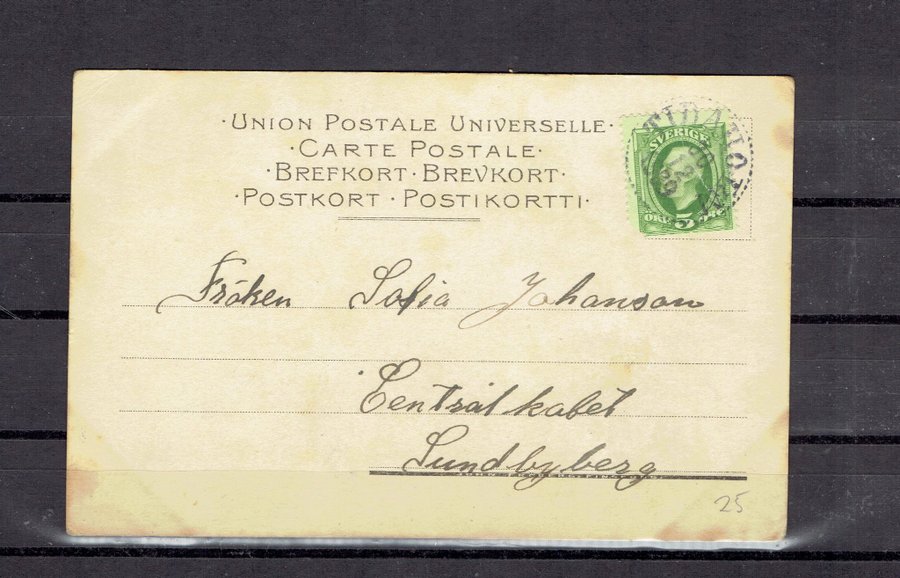 ·UNION POSTALE UNIVERSELLE·
·CARTE POSTALE·
·BREFKORT·BREVKORT·
·POSTKORT·POSTIKORTTI·
SVERIGE
ÖRE 5 ÖRE
TIDAHOLM
Fröken Sofia Johanson
Centralkabet
Sundbyberg
25